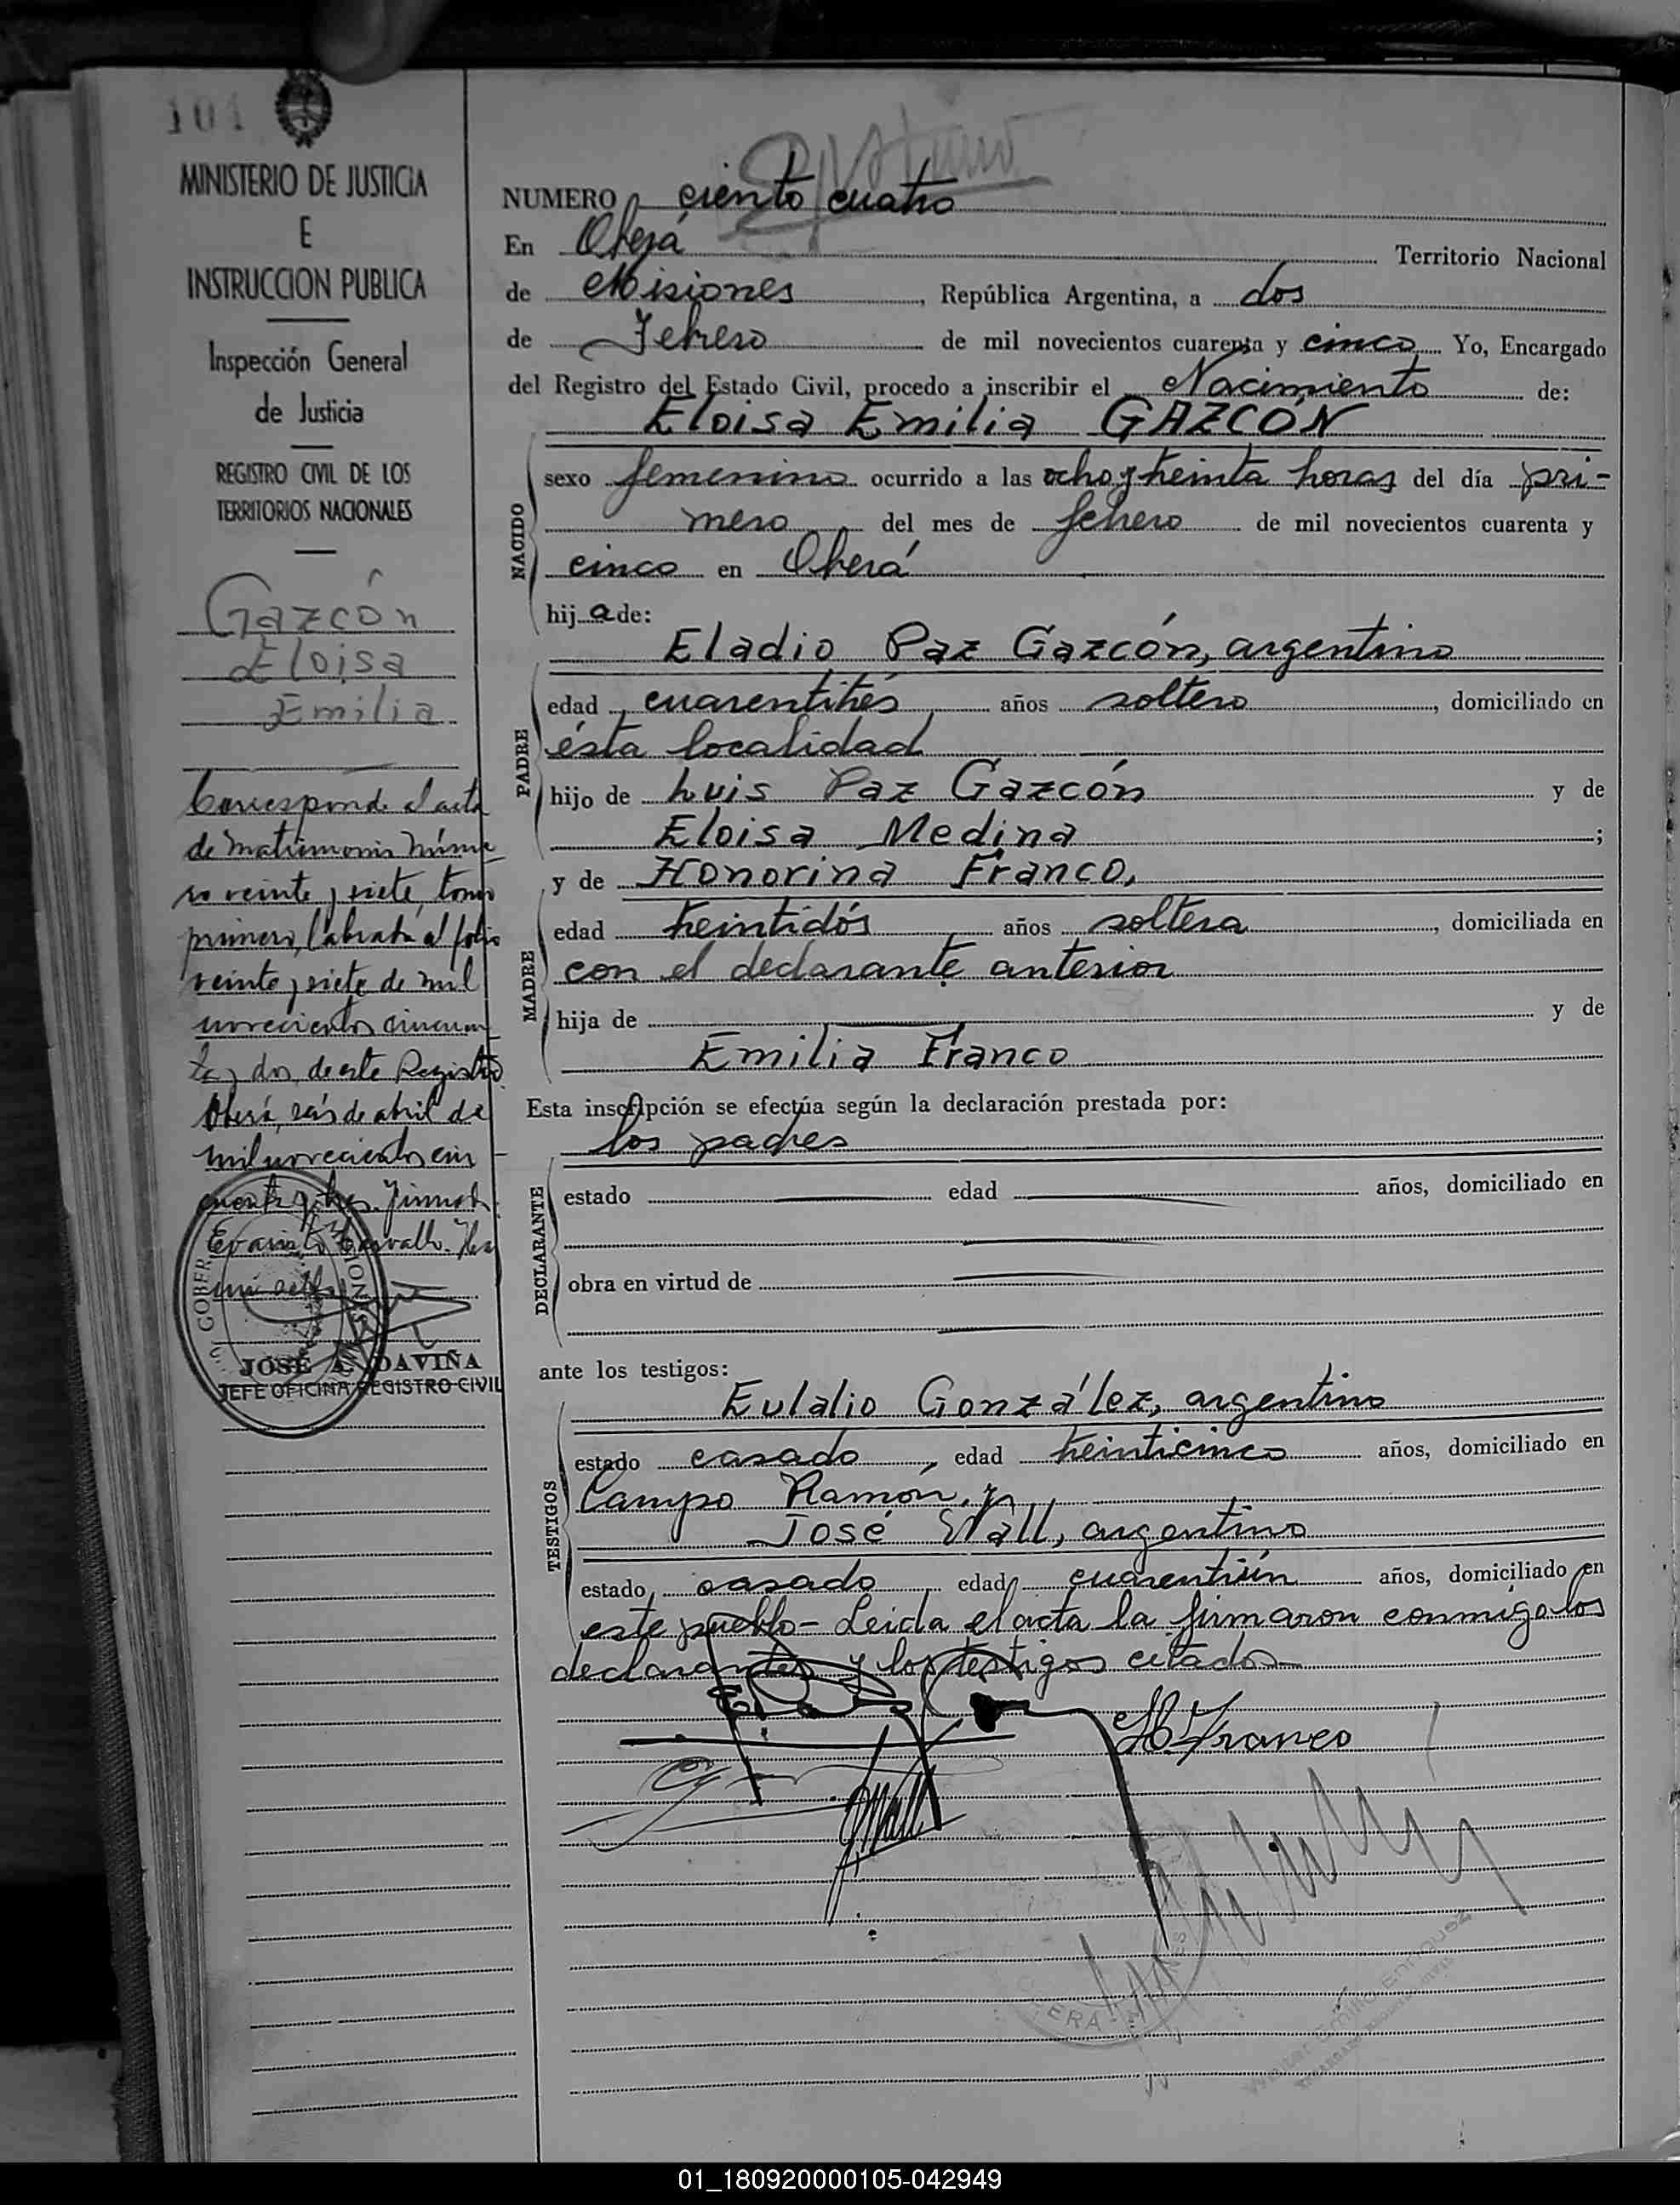 104
MINISTERIO DE JUSTICIA
E
INSTRUCCION PUBLICA
Inspección General
de Justicia
REGISTRO CIVIL DE LOS
TERRITORIOS NACIONALES
Gazcón
Eloisa
Emilia
Corresponde al acta
de matrimonio núme-
ro veinte y siete, tomo
primero, labrada al folio
veinte y siete de mil
novecientos cincuen
ta y dos, de este Registro
Oberá, seis de abril de
mil novecientos cin
cuenta y tres. Firmado:
Evaristo Carvallo.
JOSÉ A. DAVIÑA
JEFE OFICINA REGISTRO CIVIL
NUMERO ciento cuatro
En Oberá Territorio Nacional
de Misiones, República Argentina, a dos
de Febrero de mil novecientos cuarenta y cinco Yo, Encargado
del Registro del Estado Civil, procedo a inscribir el Nacimiento de:
Eloisa Emilia GAZCÓN
NACIDO
sexo femenino ocurrido a las ocho y treinta horas del día pri-
mero del mes de febrero de mil novecientos cuarenta y
cinco en Oberá
hija de:
PADRE
Eladio Paz Gazcón, argentino
edad cuarentitrés años soltero, domiciliado en
ésta localidad
hijo de Luis Paz Gazcón y de
Eloisa Medina;
MADRE
y de Honorina Franco,
edad treintidós años soltera, domiciliada en
con el declarante anterior
hija de y de
Emilia Franco
Esta inscripción se efectúa según la declaración prestada por:
los padres
DECLARANTE
estado edad años, domiciliado en
obra en virtud de
ante los testigos:
TESTIGOS
Eulalio González, argentino
estado casado, edad treinticinco años, domiciliado en
Campo Ramón, y
José Wall, argentino
estado casado edad cuarentiún años, domiciliado en
este pueblo - Leida el acta la firmaron conmigo los
declarantes y los testigos citados -
H. Franco
JWall
01_180920000105-042949